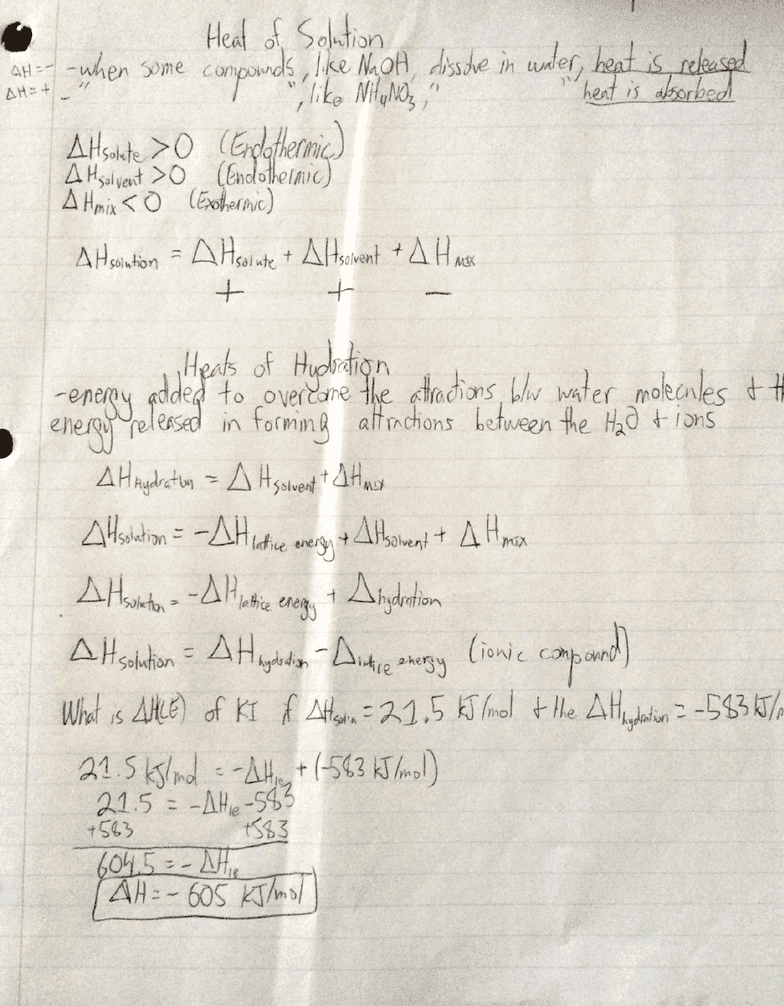 Heat of Solution
ΔH=- -when some compounds, like NaOH, dissolve in water, heat is released
ΔH=+ - " ", like NH4NO3, " " heat is absorbed
ΔHsolute >0 (Endothermic)
ΔHsolvent >0 (Endothermic)
ΔHmix <0 (Exothermic)
ΔHsolution = ΔHsolute + ΔHsolvent + ΔHmix
+ + -
Heats of Hydration
-energy added to overcome the attractions b/w water molecules +
energy released in forming attractions between the H2O + ions
ΔHHydration = ΔHsolvent + ΔHmix
ΔHsolution = -ΔHlattice energy + ΔHsolvent + ΔHmix
ΔHsolution = -ΔHlattice energy + Δhydration
ΔHsolution = ΔHhydration - Δlattice energy (ionic compound)
What is ΔH(LE) of KI if ΔHsol'n = 21.5 KJ/mol + the ΔHhydration = -583 KJ/
21.5 kJ/mol = -ΔHle + (-583 KJ/mol)
21.5 = -ΔHle -583
+583 +583
604.5 = -ΔHle
ΔH = - 605 KJ/mol